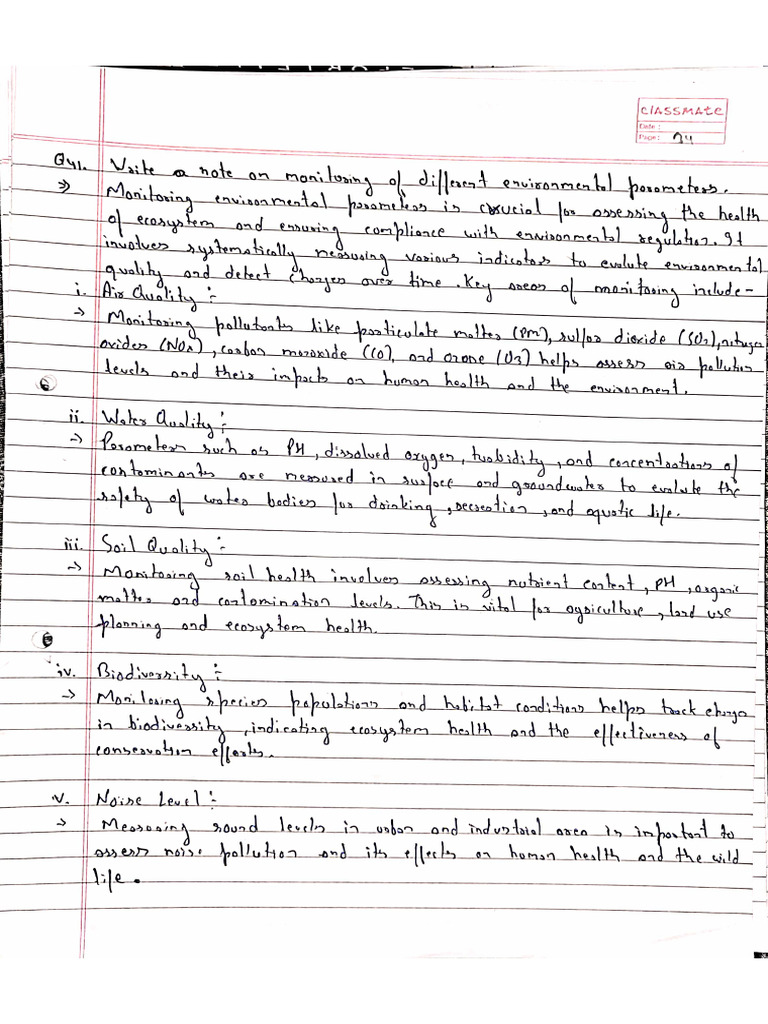 classmate
Date :
Page : 94
Q41. Write a note on monitoring of different environmental parameters.
⇒ Monitoring environmental parameters is crucial for assessing the health
of ecosystem and ensuring compliance with environmental regulation. It
involves systematically measuring various indicators to evalute environmental
quality and detect changes over time. Key areas of monitoring include-
i. Air Quality :-
→ Monitoring pollutants like particulate matter (PM), sulfor dioxide (SO2), nitrogen
oxides (NOx), carbon monoxide (CO), and ozone (O3) helps assess air pollution
levels and their impacts on human health and the environment.
ii. Water Quality :-
→ Parameters such as PH, dissolved oxygen, turbidity, and concentrations of
contaminants are measured in surface and groundwater to evalute the
safety of water bodies for drinking, recreation, and aquatic life.
iii. Soil Quality :-
→ Monitoring soil health involves assessing nutrient content, PH, organic
matter and contamination levels. This is vital for agriculture, land use
planning and ecosystem health.
iv. Biodiversity :-
→ Monitoring species populations and habitat conditions helps track change
in biodiversity, indicating ecosystem health and the effectiveness of
conservation efforts.
v. Noise Level :-
→ Measuring sound levels in urban and industrial area is important to
assess noise pollution and its effects on human health and the wild
life.